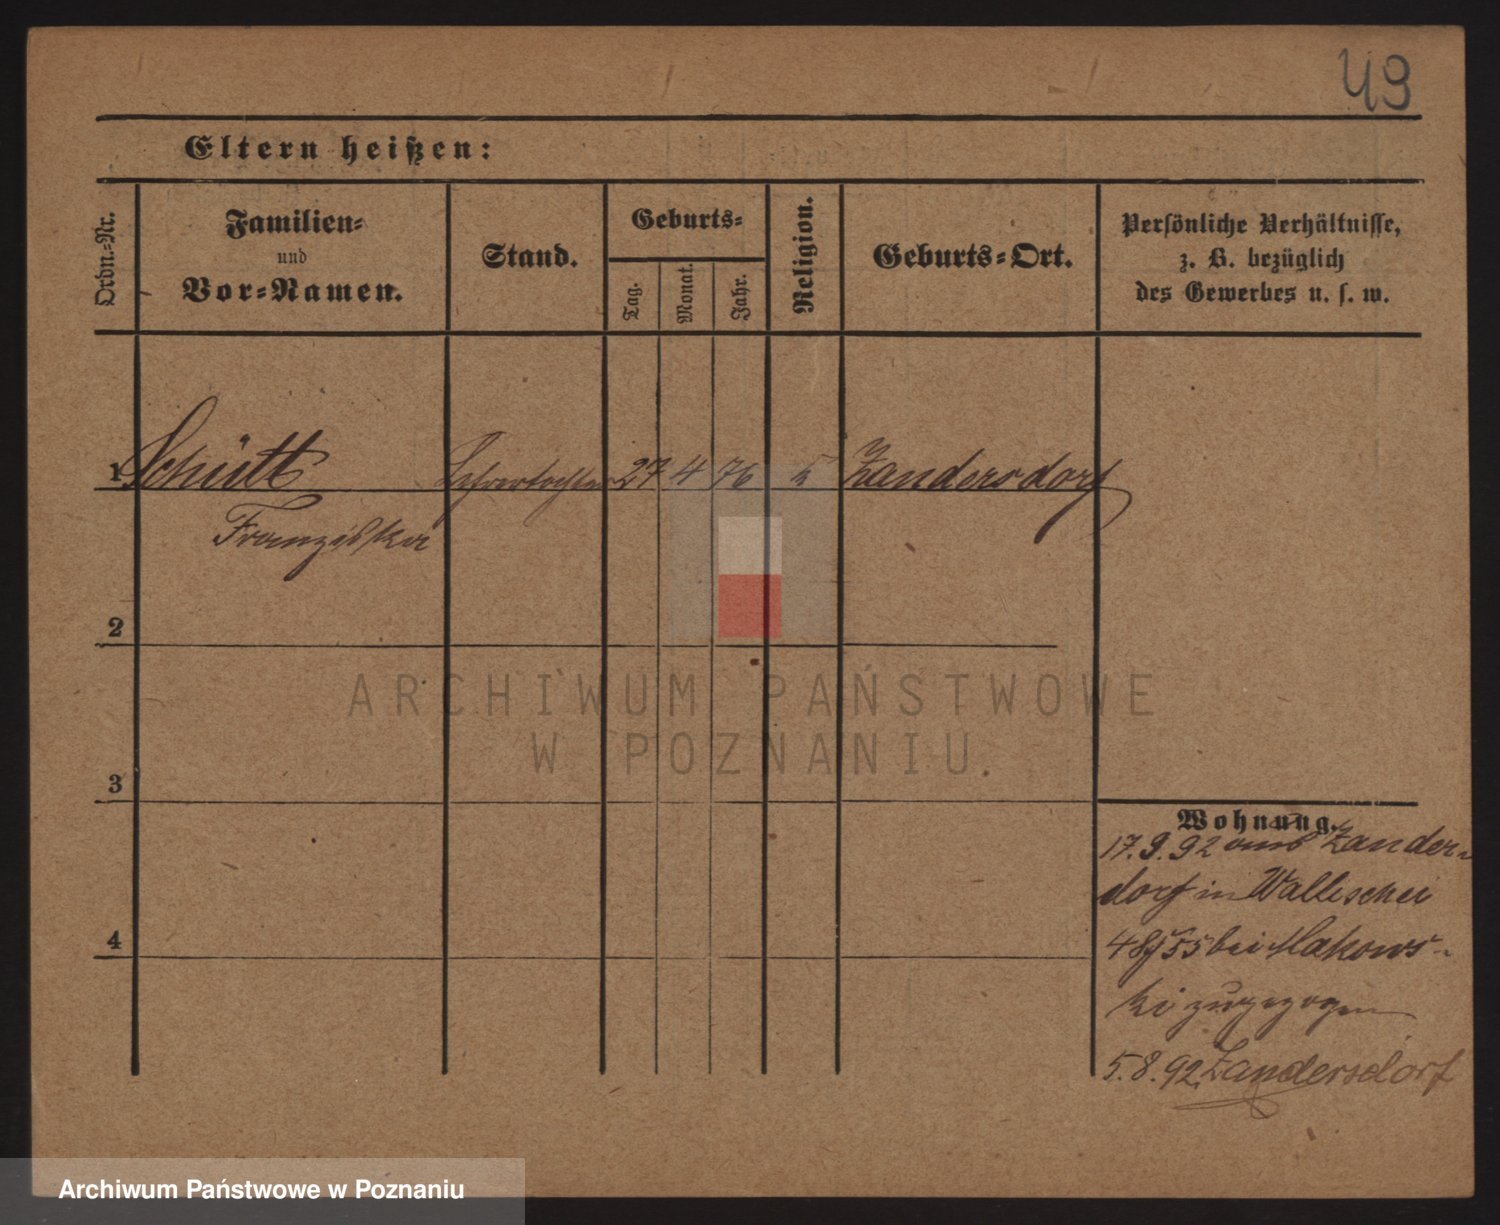 49
Eltern heißen:
Ordn.-Nr.
Familien-
und
Vor-Namen.
Stand.
Geburts-
Tag.
Monat.
Jahr.
Religion.
Geburts-Ort.
Persönliche Verhältnisse,
z. B. bezüglich
des Gewerbes u. s. w.
1 Schütt Lehrertochter 27 4 76 k Zandersdorf
Franziska
2
3
4
Wohnung.
17.9.92 aus Zander-
dorf in Wallischei
48/55 bei Makows-
ki zugezogen
5.8.92 Zandersdorf
ARCHIWUM PAŃSTWOWE
W POZNANIU.
Archiwum Państwowe w Poznaniu